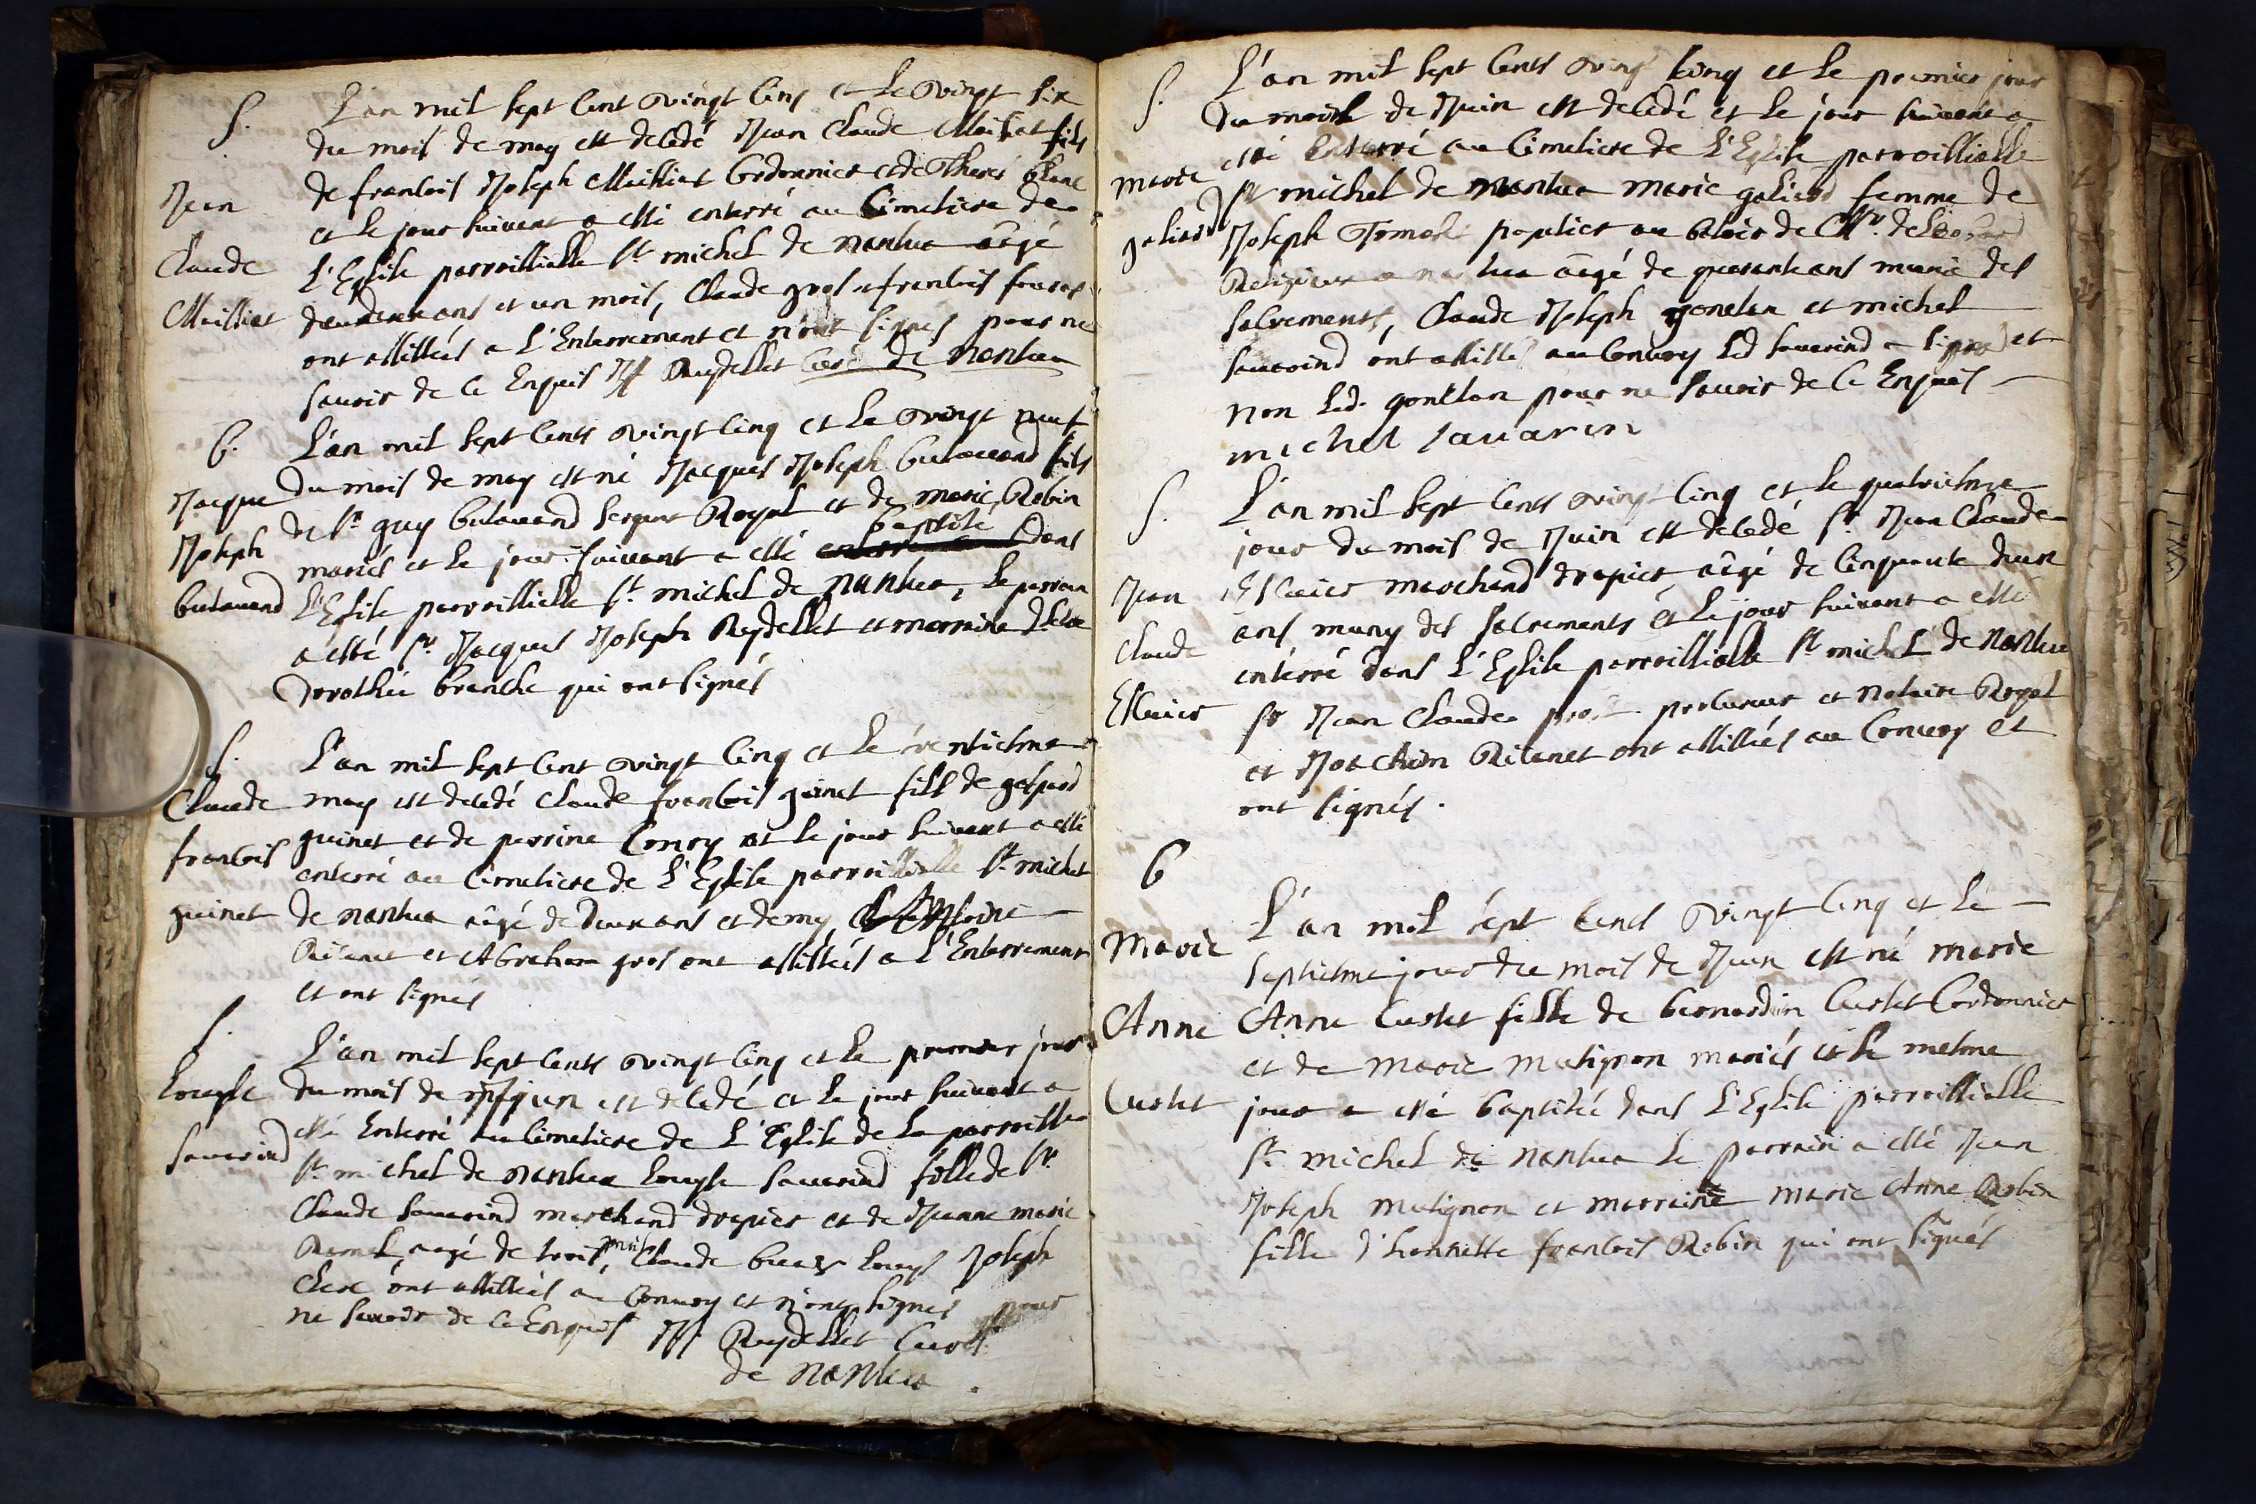 S.
L'an mil sept cent vingt cinq et le vingt six
du mois de may est decedé Jean Claude Maissiat fils
Jean
de francois Joseph Maissiat Cordonnier et de
et le jour suivant a esté enterré au Cimetiere de
Claude
L'Eglise parroissialle St michel de nantua aâgé
Maissiat
deux ans et un mois, Claude gros et francois
ont assistés a L'Enterrement et n'ont signés pour ne
sauoir de ce Enquis Reydellet Curé de Nantua
B.
L'an mil sept cents vingt cinq et le vingt neuf
Jacque
du mois de may est né Jacques Joseph butauand fils
de Sr guy butauand sergent Royal et de marie Robin
Joseph
mariés et le jour suivant a esté baptisé dans
butauand
L'Eglise parroissialle St michel de nantua, le parrain
a esté Sr Jacques Joseph Reydellet et marraine
dorothée branche qui ont signés
S.
L'an mil sept cent vingt cinq et le trentiesme
Claude
may est decedé Claude francois guinet fils de gaspard
francois
guinet et de perrine Conry et le jour suivant a esté
enterré au Cimetiere de L'Eglise parroissialle St michel
guinet
de nantua aâgé de deux ans et demy,
et Abraham gros ont assistés a L'Enterrement
et ont signés
S.
L'an mil sept cents vingt cinq et le premier jour
Louyse
du mois de juin est decedé et le jour suivant a
esté Enterré au Cimetiere de L'Eglise de la parroisse
Sauarind
St michel de nantua Louyse Sauarind fille de Sr
Claude Sauarind marchand drapier et de Jeanne marie
aagé de trois mois, Claude Louys Joseph
ont assistés au Conuoy et n'ont signés pour
ne sauoir de ce Enquis Reydellet Curé
de Nantua.
S.
L'an mil sept cents vingt cinq et le premier jour
du mois de Juin est decedé et le jour suiuant a
marie
esté Enterré au Cimetiere de L'Eglise parroissialle
St michel de nantua marie galiard femme de
galiard
Joseph papetier au de
Religieux a nantua aâgé de quarante ans munie des
sacrements, Claude Joseph et michel
sauarind ont assistés au Conuoy led sauarind a signé et
non led. pour ne sauoir de ce Enquis
michel sauarin
S.
L'an mil sept cents vingt cinq et le quatriesme
jour du mois de Juin est decedé Sr Jean Claude
Jean
marchand drapier aâgé de cinquante deux
Claude
ans muny des sacrements et le jour suiuant a esté
enterré dans L'Eglise parroissialle St michel de nantua
Sr Jean Claude procureur et notaire Royal
et Joachim ont assistés au Conuoy et
ont signés.
B
L'an mil sept cents vingt cinq et le
Marie
septiesme jour du mois de Juin est né marie
Anne
Anne Curtet fille de bernardin Curtet Cordonnier
et de marie matignon mariés et le mesme
Curtet
jour a esté baptisée dans L'Eglise parroissialle
St michel de nantua le parrain a esté Jean
Joseph matignon et marraine marie Anne Robin
fille d'honneste francois Robin qui ont signés